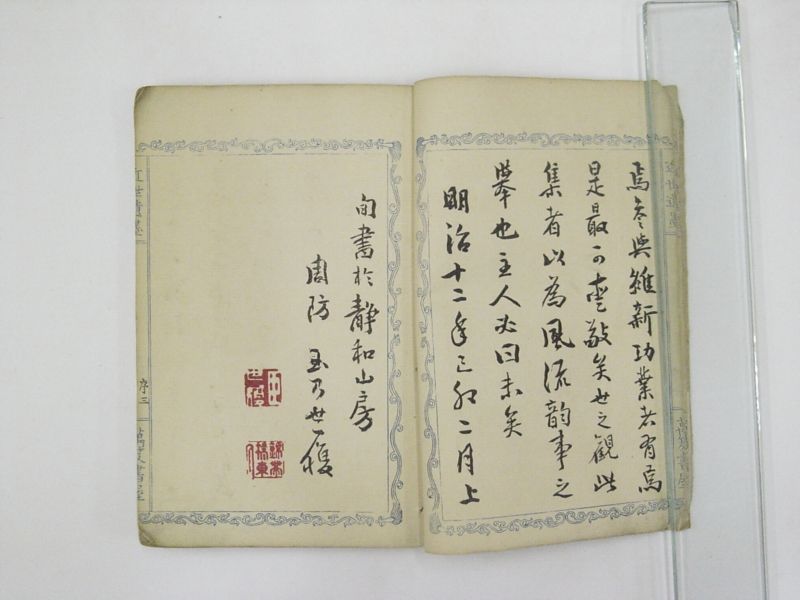 焉参與維新功業者有焉
是最可愛敬矣世之觀此
集者以為風流韵事之
舉也主人必曰未矣
明治十二年己卯二月上
旬書於靜和山房
周防 玉乃世履
序三